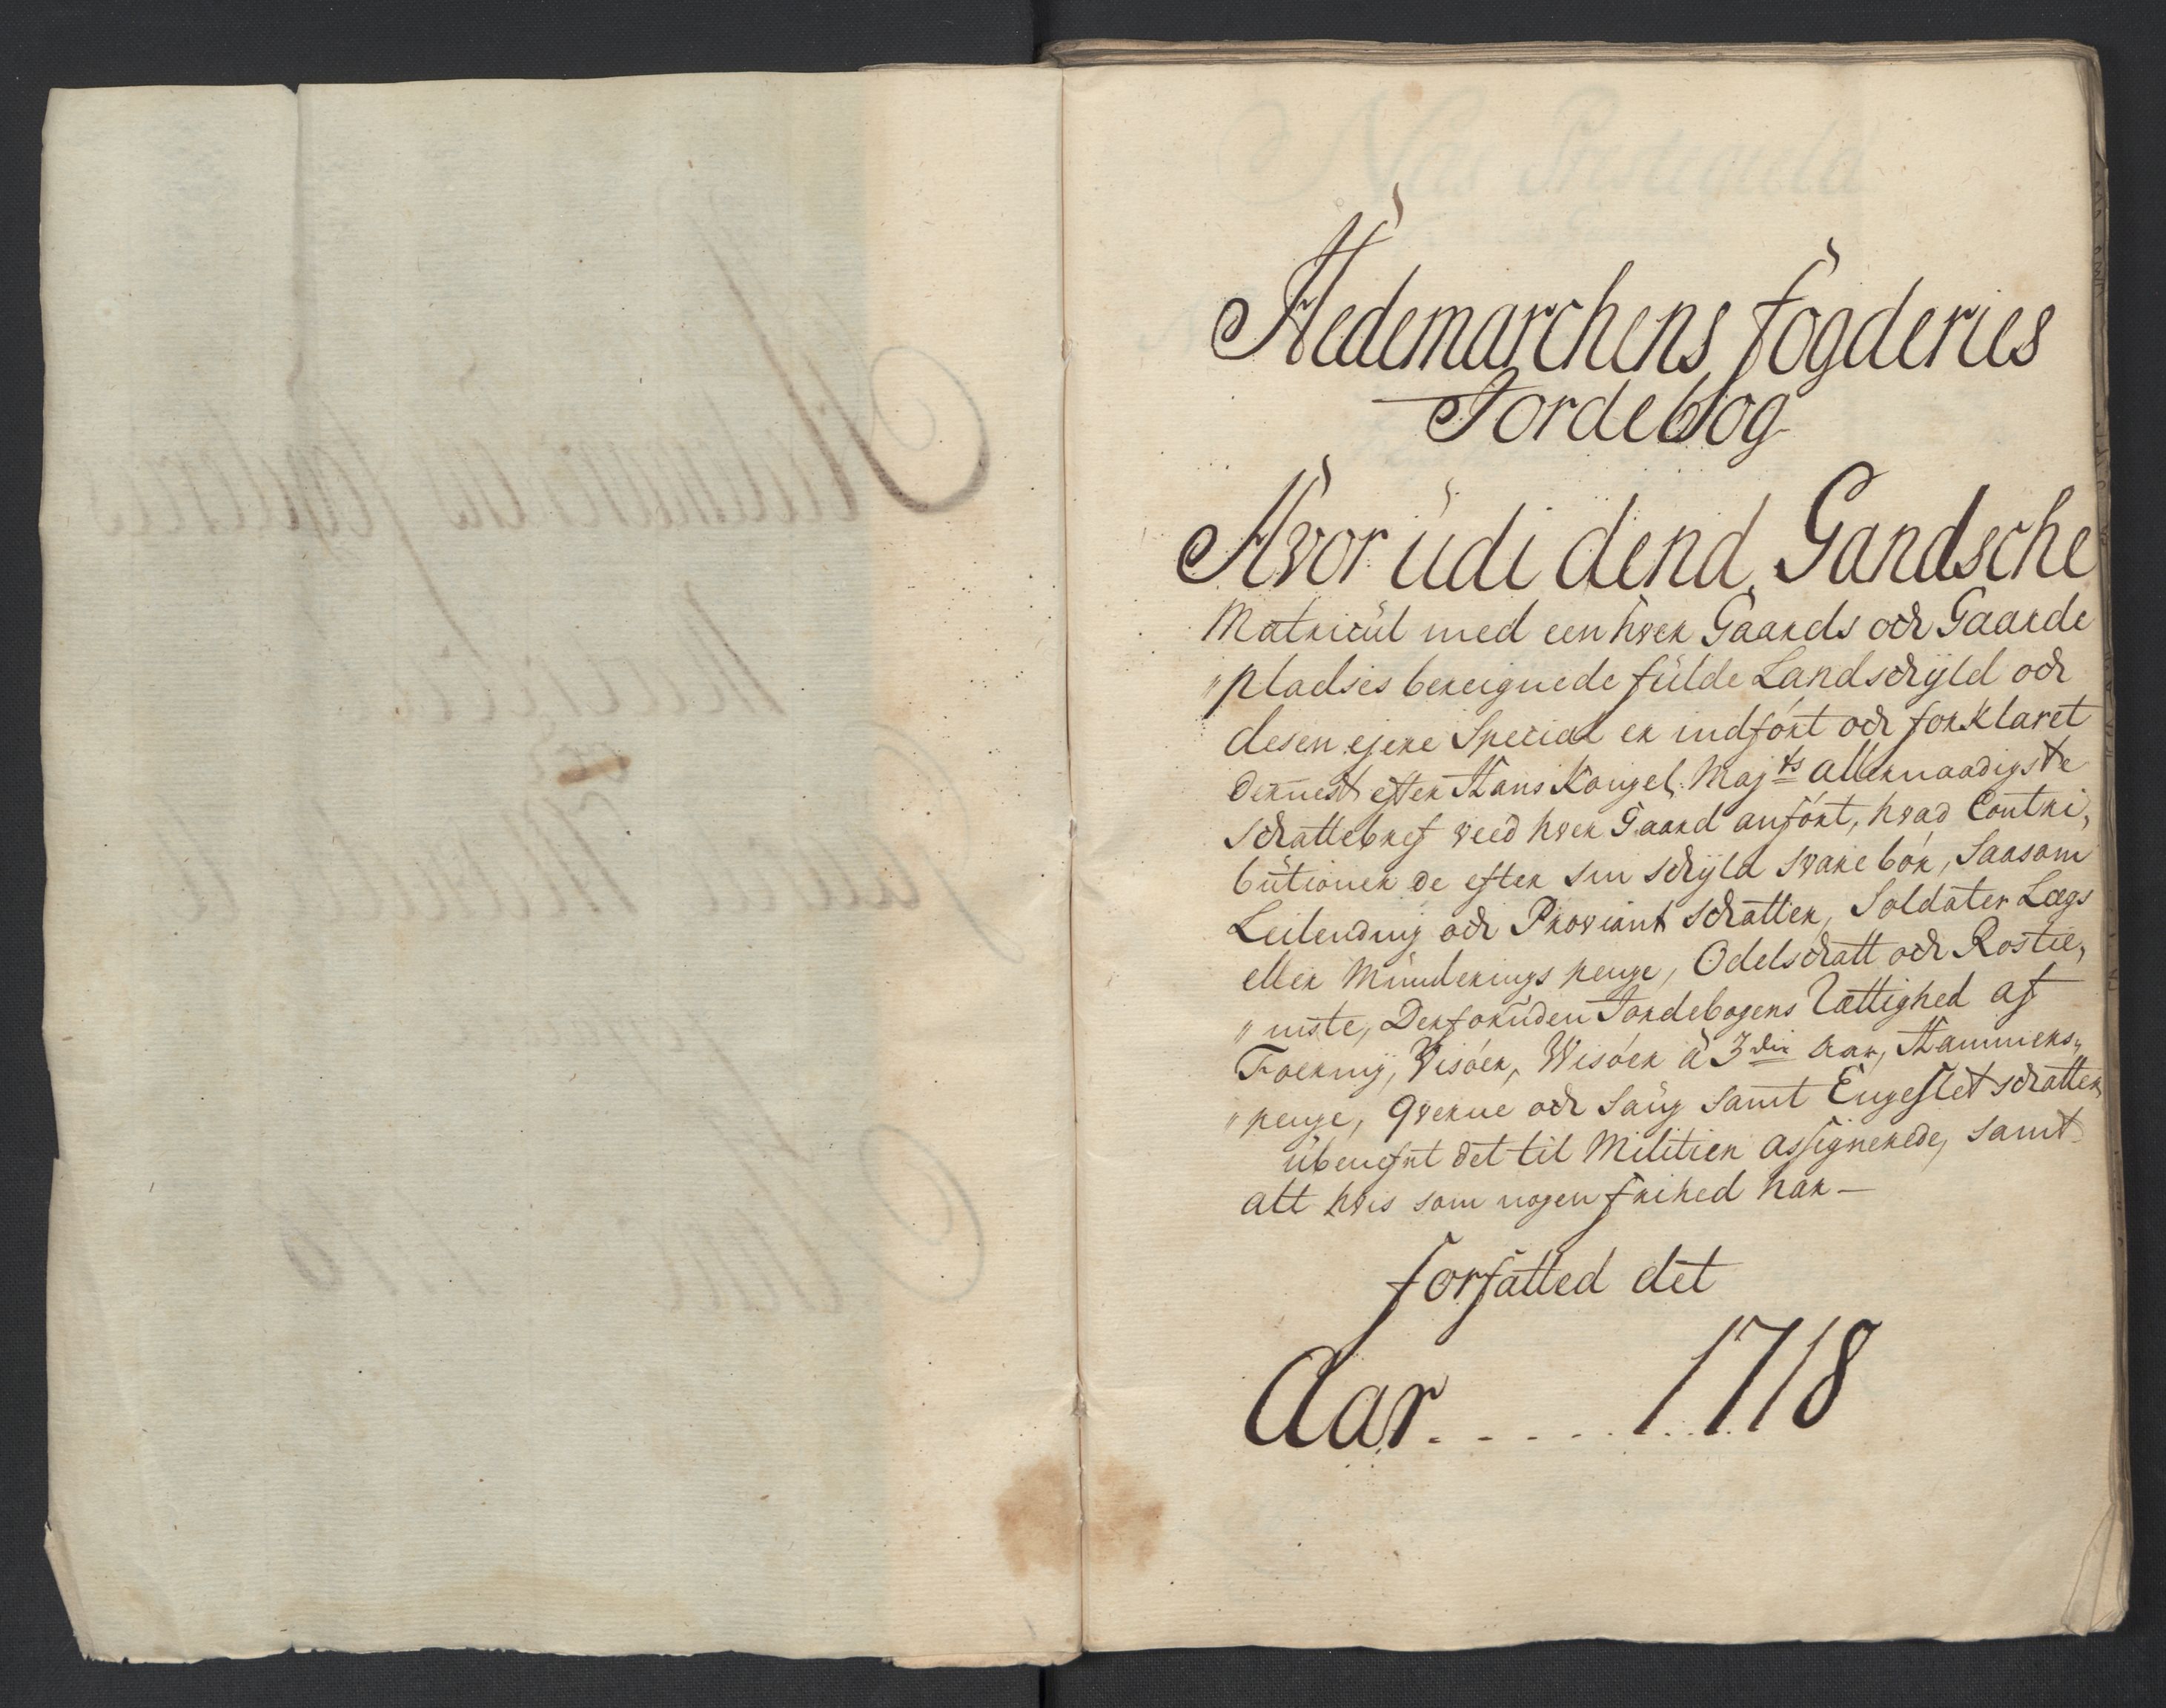 Hedemarchens fogderies
Jordebog
Hvor üdi dend Gandsche
Matricül med een hver Gaards och Gaarde
„pladses bereignede fülde Landschyld och
desen ejere Special er indfört och forklaret
dernest efter Hans Kongel. Maj ts allernaadigste
Schattebref veed hver Gaard anfört, hvad Contri,
bütioner de efter sin schyld svare bör, Saasom
Leilending och Proviant schatter, Soldater Lægs
eller Münderings penge, Odelschatt och Rostie,
„niste, Derforüden Jordebogens Rættighed af
Foering, Visöer, Wisöer à 3die Aar, Hammers„
„penge, qverne och Saüg samt Engeslet schatter,
übenefnt det til Militien assignerede, samt
att hvis som nogen frihed har —
forfatted det
Aar . . . . . 1718